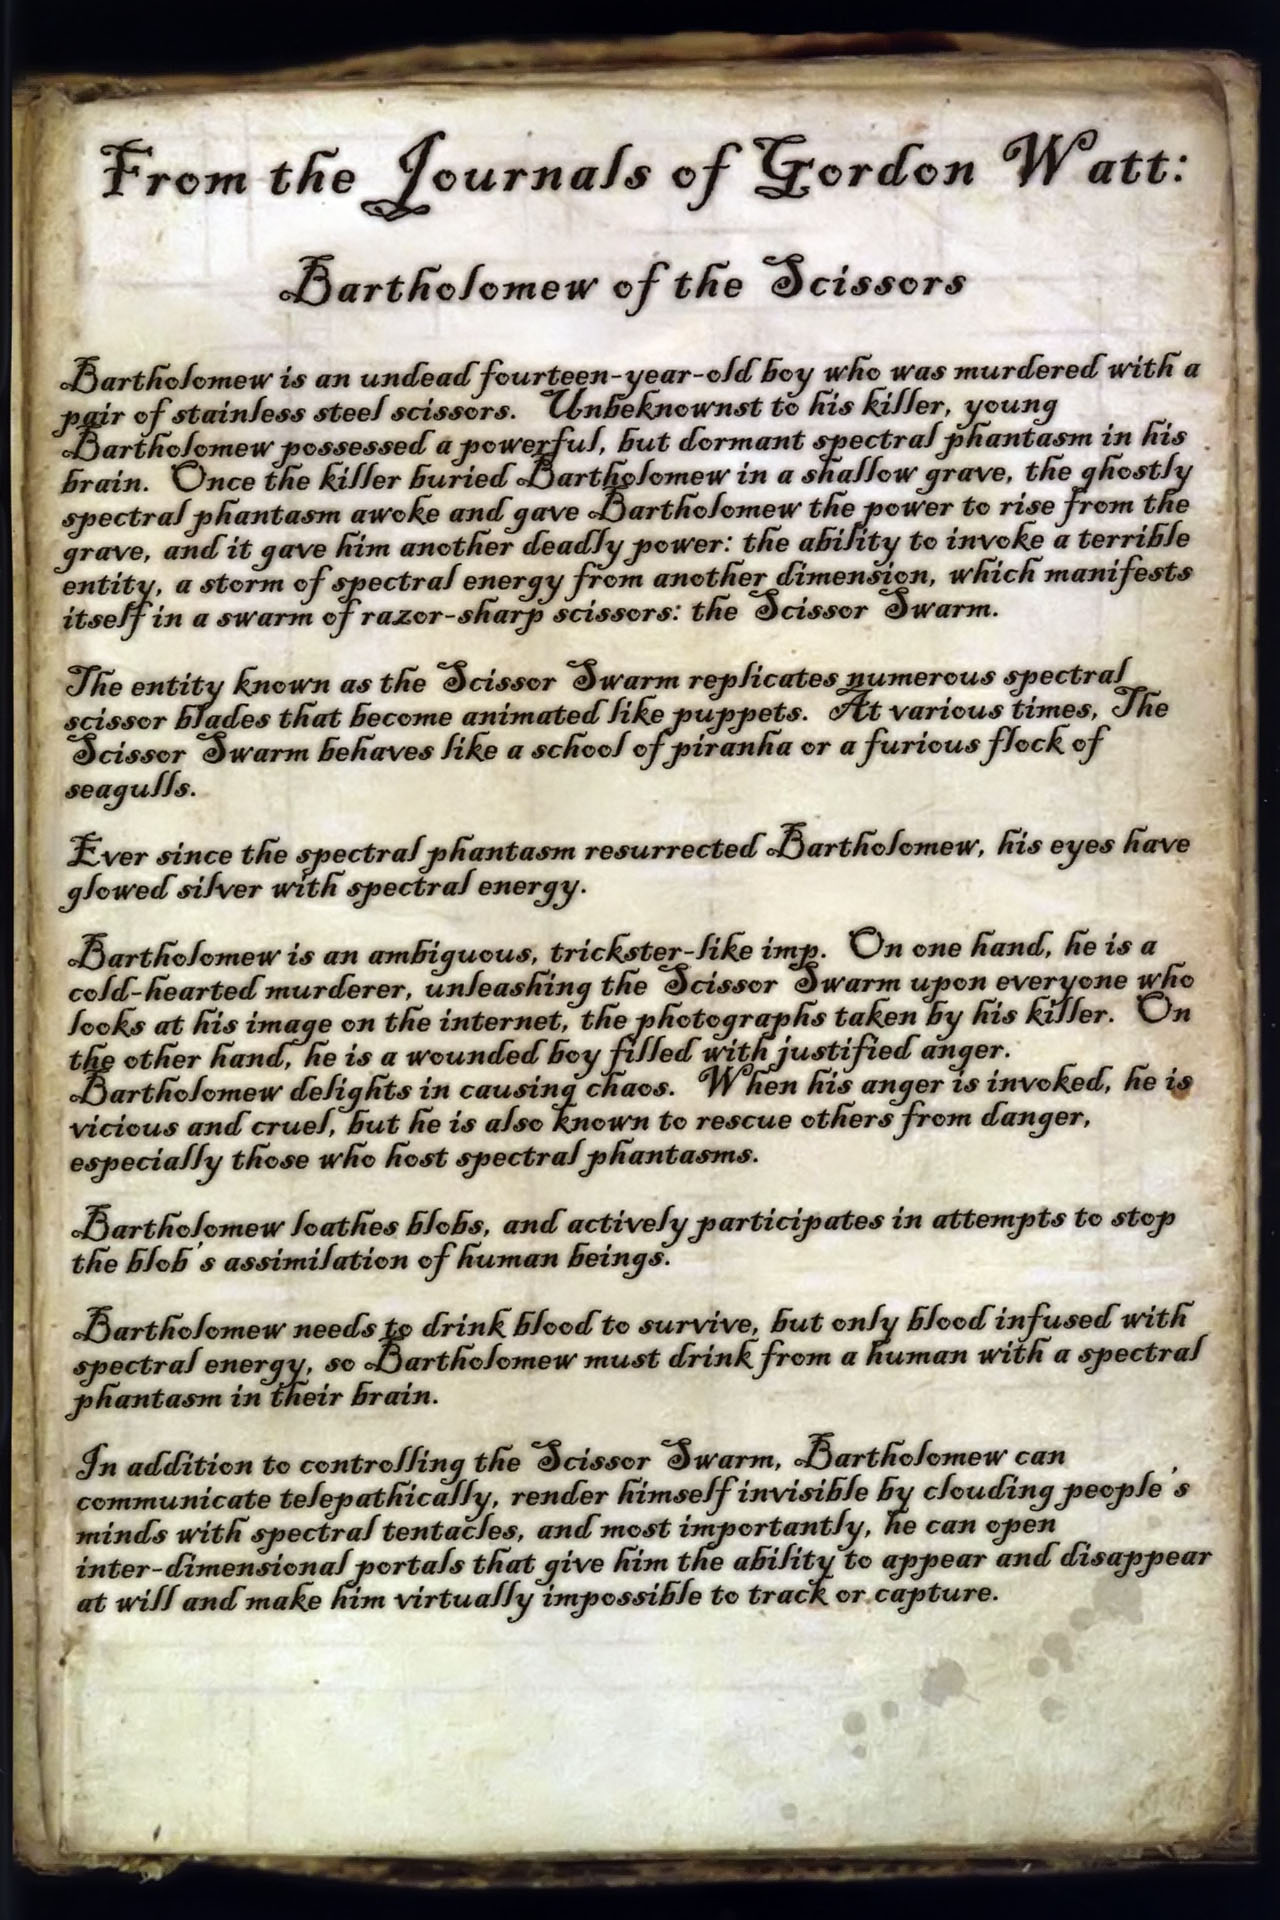 From the Journals of Gordon Watt:
Bartholomew of the Scissors
Bartholomew is an undead fourteen-year-old boy who was murdered with a
pair of stainless steel scissors. Unbeknownst to his killer, young
Bartholomew possessed a powerful, but dormant spectral phantasm in his
brain. Once the killer buried Bartholomew in a shallow grave, the ghostly
spectral phantasm awoke and gave Bartholomew the power to rise from the
grave, and it gave him another deadly power: the ability to invoke a terrible
entity, a storm of spectral energy from another dimension, which manifests
itself in a swarm of razor-sharp scissors: the Scissor Swarm.
The entity known as the Scissor Swarm replicates numerous spectral
scissor blades that become animated like puppets. At various times, The
Scissor Swarm behaves like a school of piranha or a furious flock of
seagulls.
Ever since the spectral phantasm resurrected Bartholomew, his eyes have
glowed silver with spectral energy.
Bartholomew is an ambiguous, trickster-like imp. On one hand, he is a
cold-hearted murderer, unleashing the Scissor Swarm upon everyone who
looks at his image on the internet, the photographs taken by his killer. On
the other hand, he is a wounded boy filled with justified anger.
Bartholomew delights in causing chaos. When his anger is invoked, he is
vicious and cruel, but he is also known to rescue others from danger,
especially those who host spectral phantasms.
Bartholomew loathes blobs, and actively participates in attempts to stop
the blob's assimilation of human beings.
Bartholomew needs to drink blood to survive, but only blood infused with
spectral energy, so Bartholomew must drink from a human with a spectral
phantasm in their brain.
In addition to controlling the Scissor Swarm, Bartholomew can
communicate telepathically, render himself invisible by clouding people's
minds with spectral tentacles, and most importantly, he can open
inter-dimensional portals that give him the ability to appear and disappear
at will and make him virtually impossible to track or capture.